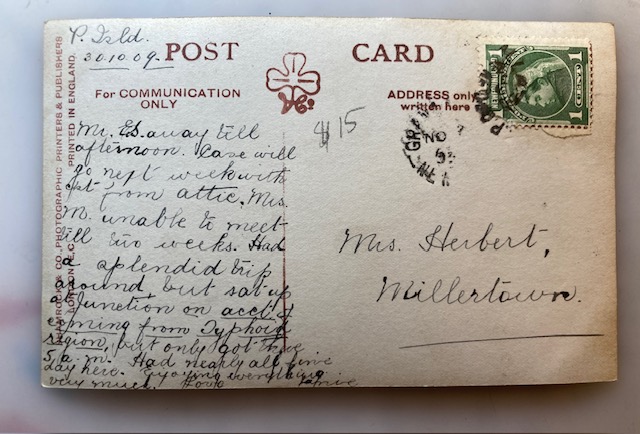 P. Isld.
30.10.09.
POST CARD
For COMMUNICATION
ONLY
ADDRESS only
written here
SHAMROCK & CO., PHOTOGRAPHIC PRINTERS & PUBLISHERS
LONDON E.C. PRINTED IN ENGLAND
1 CENT 1
$15
GRAN
NO
Mr. Ed. away till
afternoon. Case will
go next week with
from attic. Mrs.
M. unable to meet
till two weeks. Had
a splendid trip
around, but sat up
at Junction on acct. of
coming from Typhoid
region, but only got here
5 a.m. Had nearly all fine
day here. Enjoying everything
very much.
Mrs. Herbert,
Millertown.